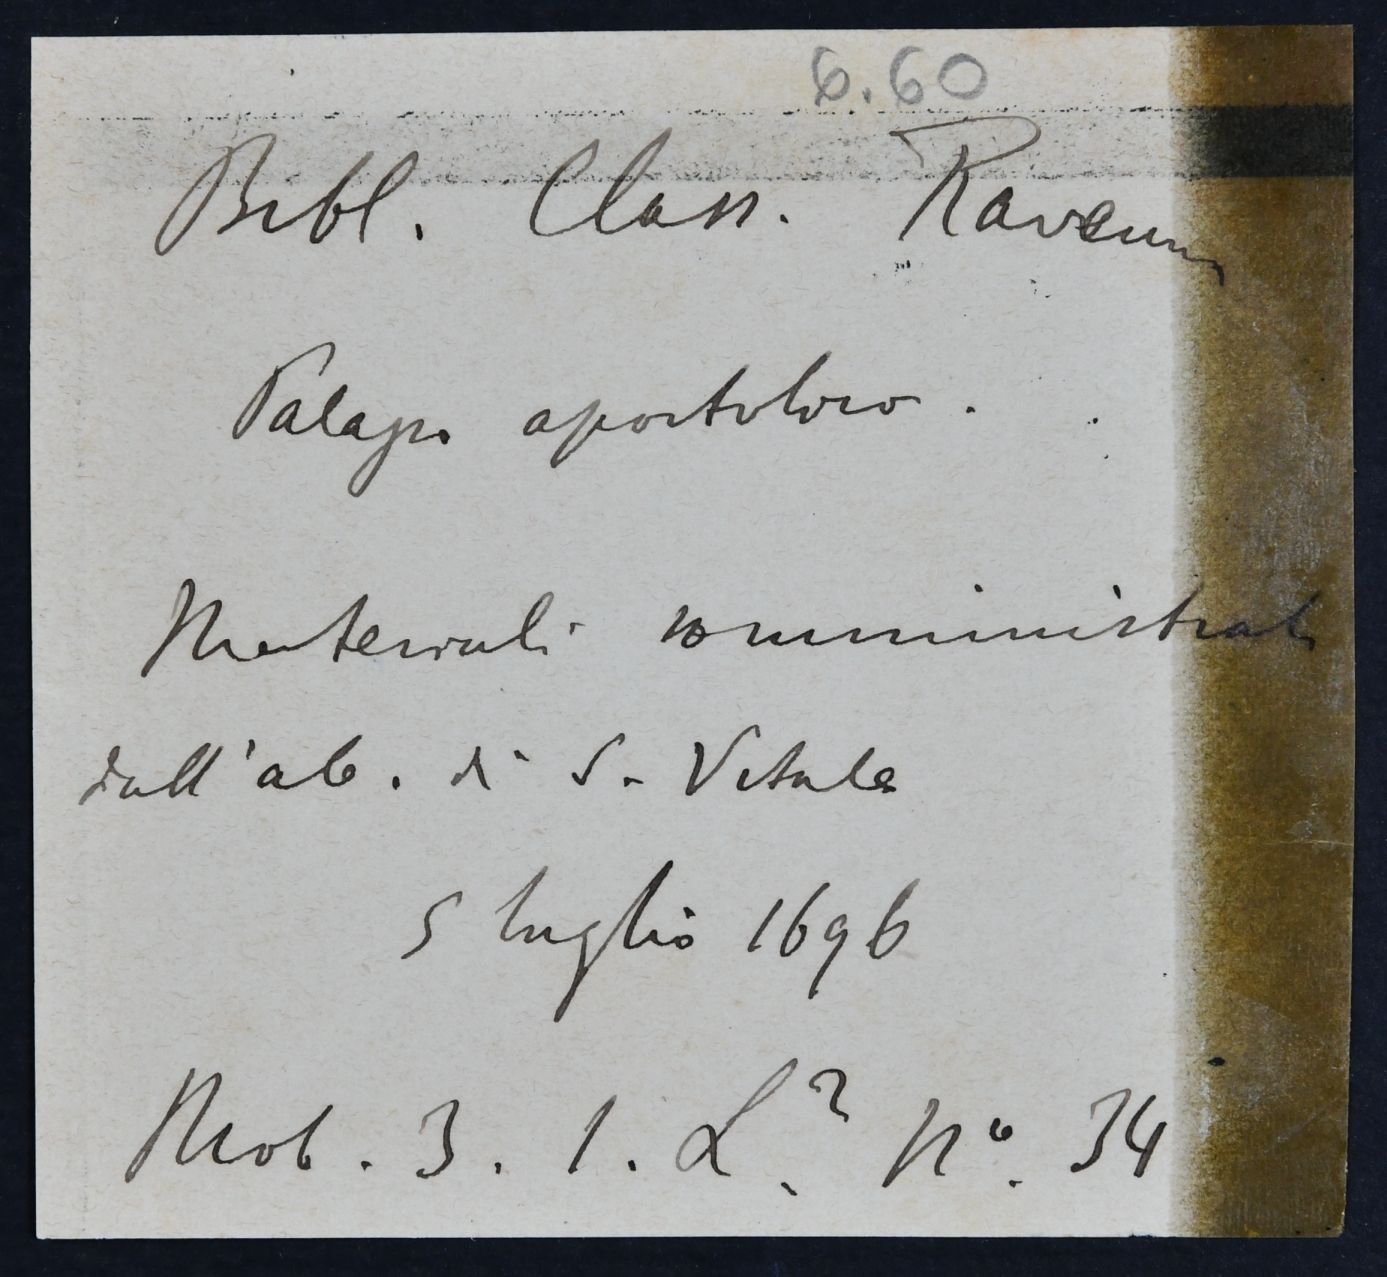 6.60
Bibl. Class. Ravenna
Palazzo apostolico.
Materiali somministrati
dall'ab. di S. Vitale
5 luglio 1696
Mob. 3. 1. L.2 No. 34